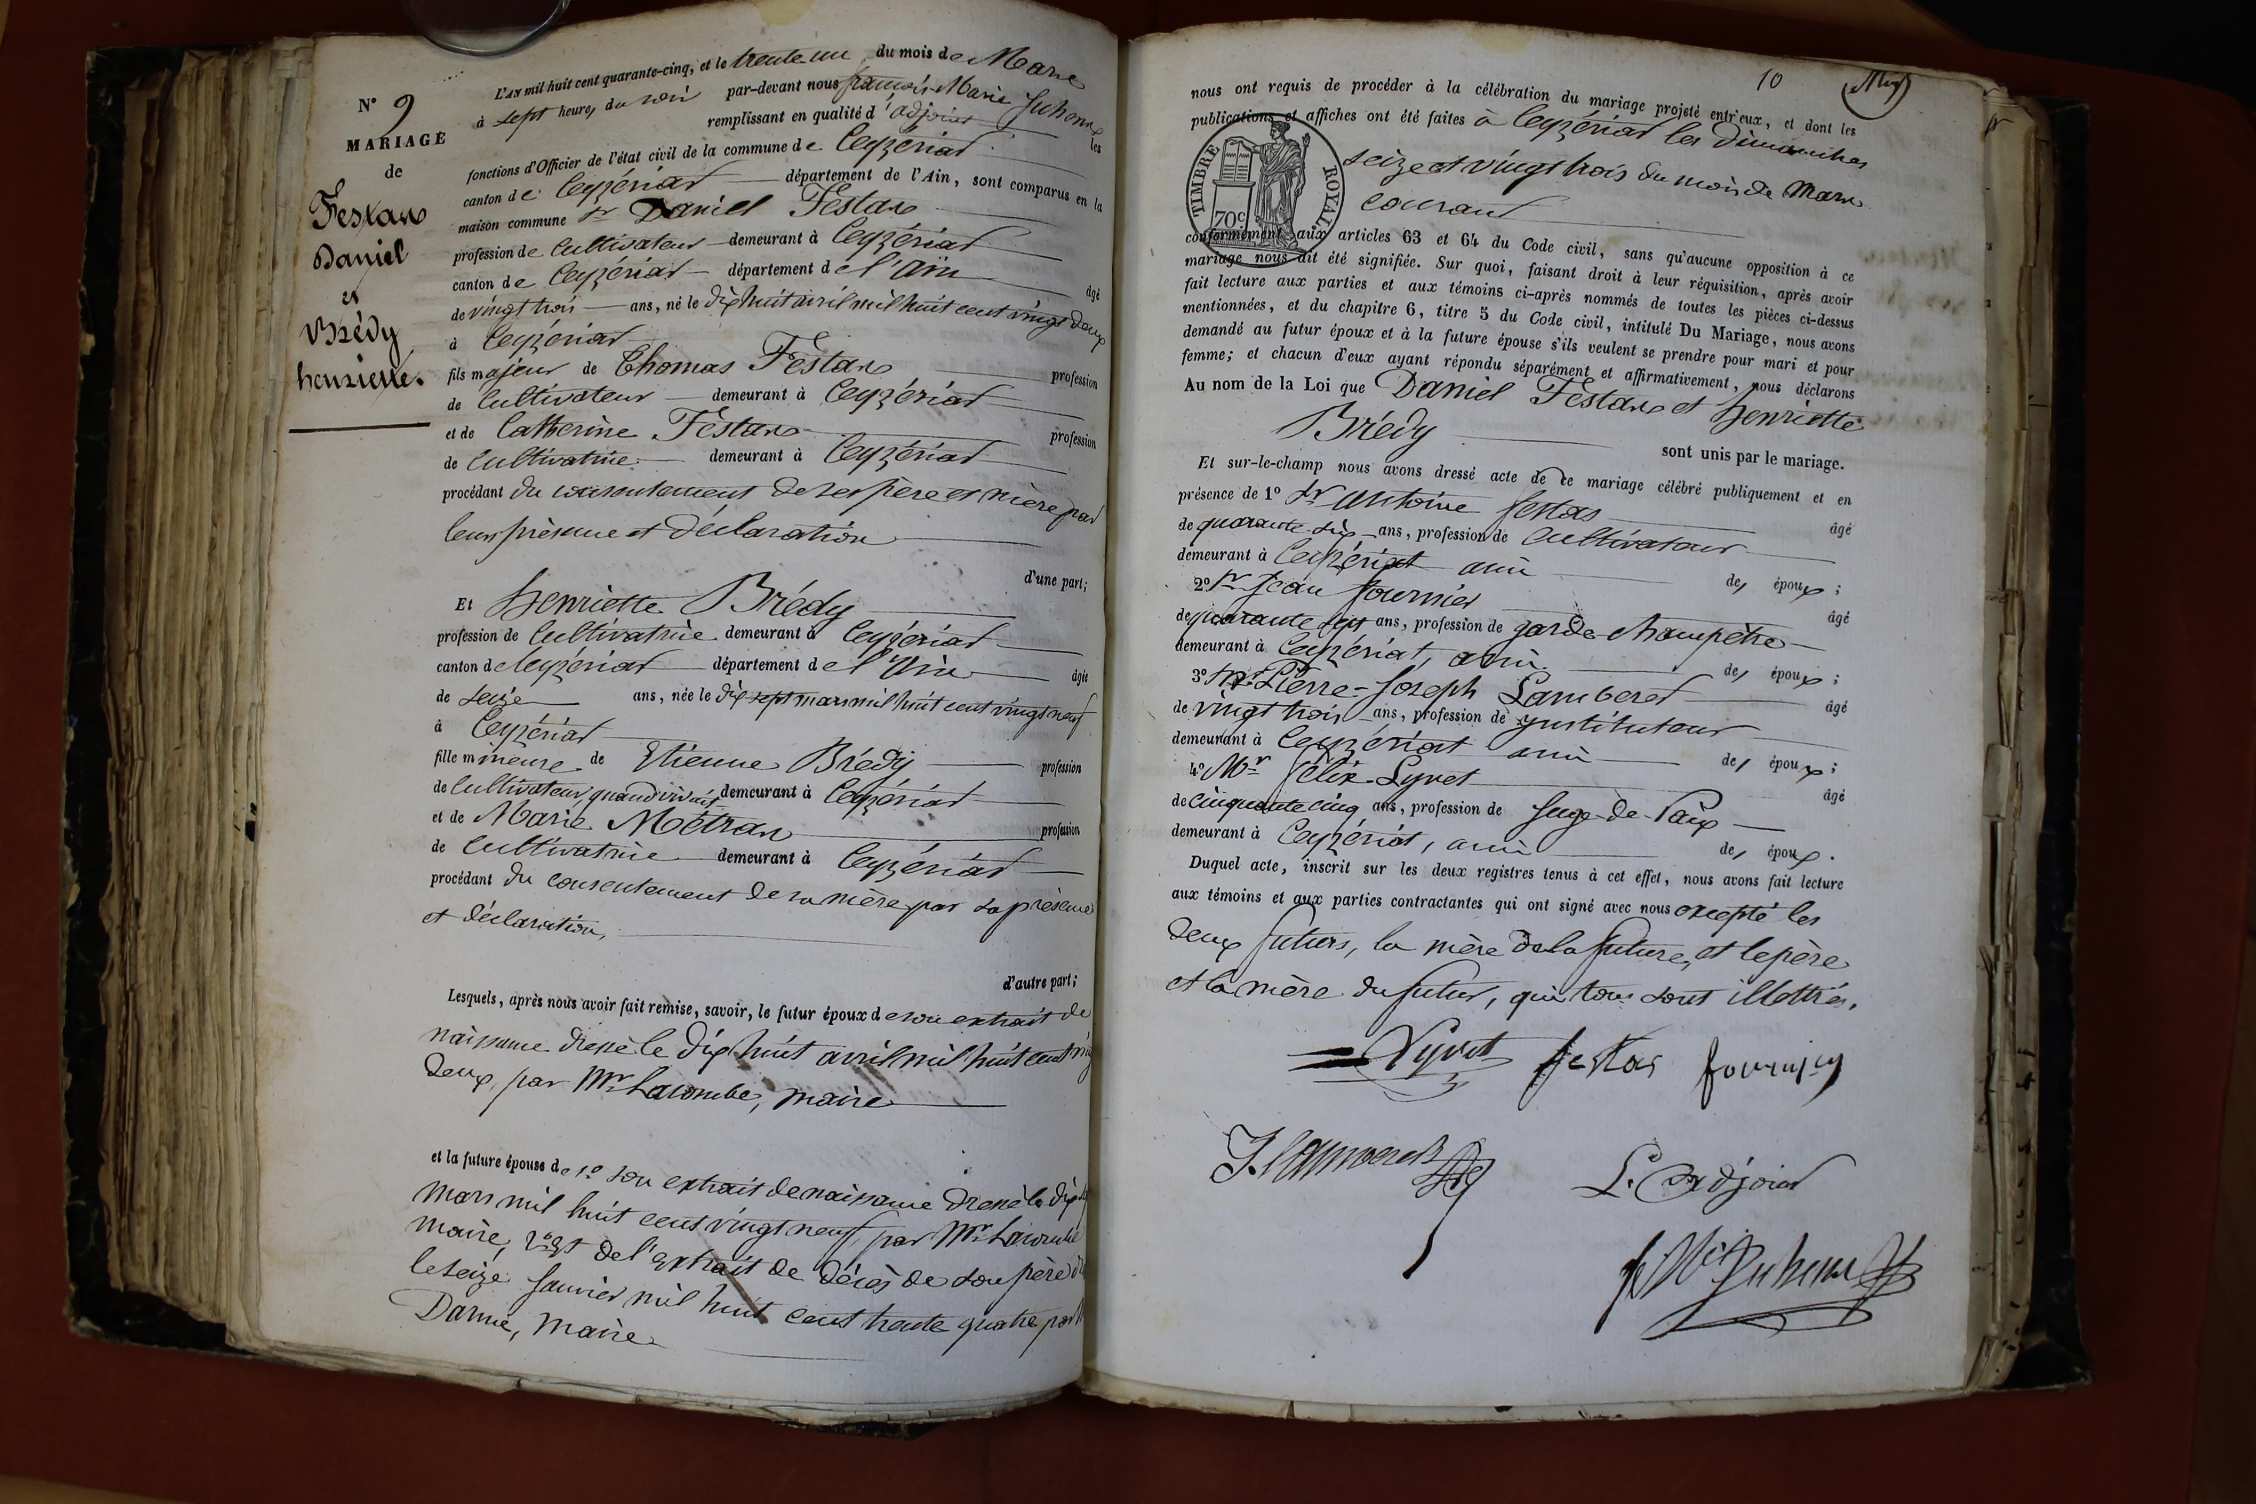 N° 9
MARIAGE
de
Festas
Daniel
et
Brédy
henriette.
L'AN mil huit cent quarante-cinq, et le trente un du mois de Mars
à sept heures du soir par-devant nous françois-Marie Juhem
remplissant en qualité d'adjoint les
fonctions d'Officier de l'état civil de la commune de Ceyzériat
canton de Ceyzériat département de l'Ain, sont comparus en la
maison commune Sr Daniel Festas
profession de Cultivateur demeurant à Ceyzériat
canton de Ceyzériat département de l'ain âgé
de vingt trois ans, né le dix huit avril mil huit cent vingt deux
à Ceyzériat
fils majeur de Thomas Festas profession
de Cultivateur demeurant à Ceyzériat
et de Catherine Festas profession
de Cultivatrice demeurant à Ceyzériat
procédant du consentement de ses père et mère par
leur présence et déclaration
d'une part;
Et henriette Brédy
profession de Cultivatrice demeurant à Ceyzériat
canton de Ceyzériat département de l'Ain âgée
de seize ans, née le dix sept mars mil huit cent vingt neuf
à Ceyzériat
fille mineure de Etienne Brédy profession
de Cultivateur, quand vivait demeurant à Ceyzériat
et de Marie Métras profession
de Cultivatrice demeurant à Ceyzériat
procédant du consentement de sa mère par sa présence
et déclaration,
d'autre part;
Lesquels, après nous avoir fait remise, savoir, le futur époux de son extrait de
naissance dressé le dix huit avril mil huit cent
deux, par Mr Lacombe, maire
et la future épouse de 1° son extrait de naissance dressé le dix
mars mil huit cent vingt neuf, par Mr Lacombe
maire, 2° Et de l'extrait de décès de son père
le seize Janvier mil huit cent trente quatre par
Darme, Maire
10
nous ont requis de procéder à la célébration du mariage projeté entr'eux, et dont les
publications et affiches ont été faites à Ceyzériat les dimanches
seize et vingt trois du mois de Mars
courant
TIMBRE ROYAL
70c
conformément aux articles 63 et 64 du Code civil, sans qu'aucune opposition à ce
mariage nous ait été signifiée. Sur quoi, faisant droit à leur réquisition, après avoir
fait lecture aux parties et aux témoins ci-après nommés de toutes les pièces ci-dessus
mentionnées, et du chapitre 6, titre 5 du Code civil, intitulé Du Mariage, nous avons
demandé au futur époux et à la future épouse s'ils veulent se prendre pour mari et pour
femme; et chacun d'eux ayant répondu séparément et affirmativement, nous déclarons
Au nom de la Loi que Daniel Festas et henriette
Brédy
sont unis par le mariage.
Et sur-le-champ nous avons dressé acte de ce mariage célébré publiquement et en
présence de 1° Sr antoine festas âgé
de quarante six ans, profession de Cultivateur
demeurant à Ceyzériat ami des époux;
2° Sr Jean fournier âgé
de quarante sept ans, profession de garde-champêtre
demeurant à Ceyzériat, ami des époux;
3° Mr Pierre-Joseph Lamberet âgé
de vingt trois ans, profession de ynstituteur
demeurant à Ceyzériat ami des époux;
4° Mr félix Lyvet âgé
de cinquante cinq ans, profession de Juge-de-Paix
demeurant à Ceyzériat, ami des époux.
Duquel acte, inscrit sur les deux registres tenus à cet effet, nous avons fait lecture
aux témoins et aux parties contractantes qui ont signé avec nous excepté les
deux futurs, la mère de la future, et le père
et la mère du futur, qui tous sont illettrés.
Lyvet festas fournier
J. Lamberet
L'adjoint